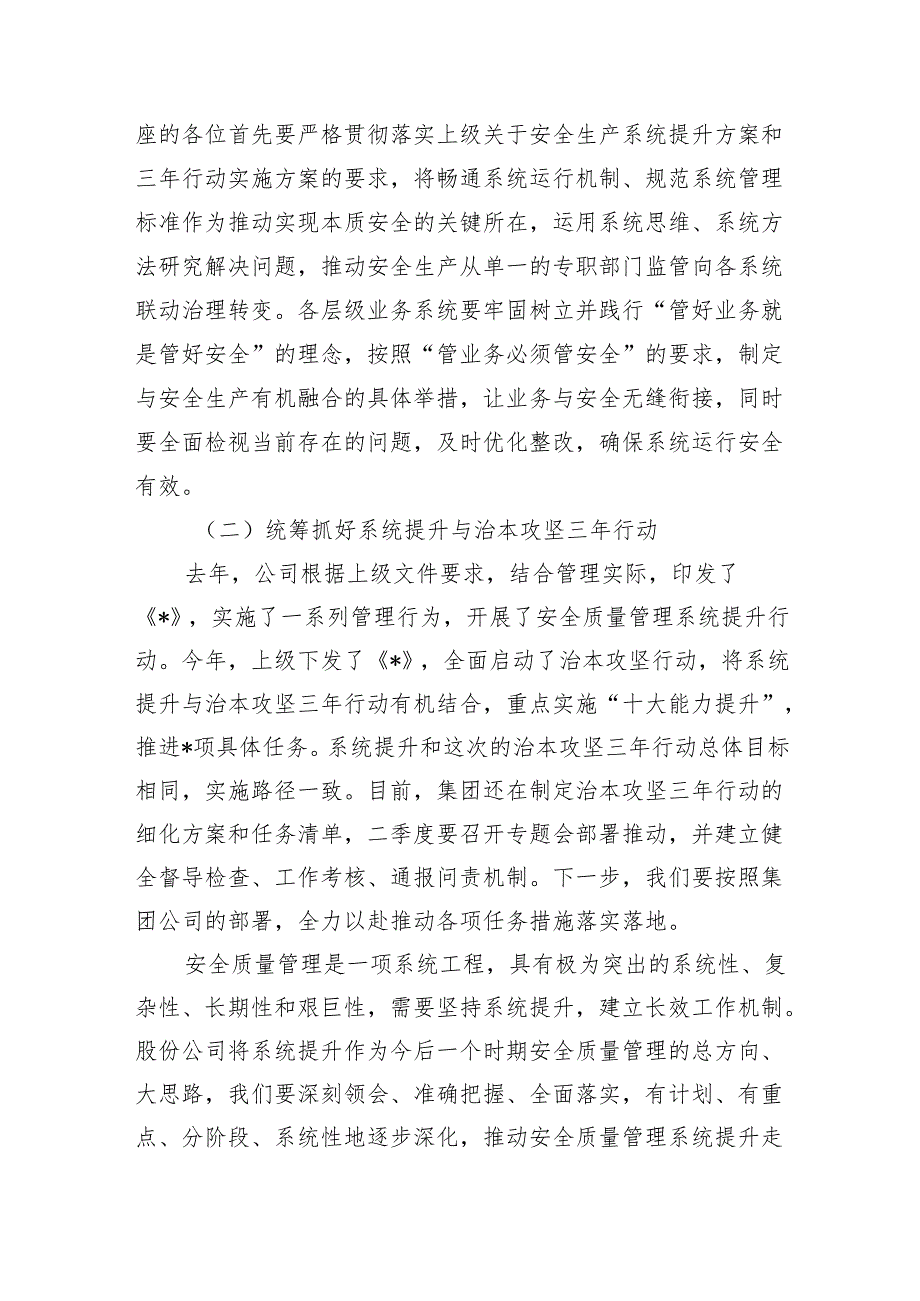 座的各位首先要严格贯彻落实上级关于安全生产系统提升方案和
三年行动实施方案的要求，将畅通系统运行机制、规范系统管理
标准作为推动实现本质安全的关键所在，运用系统思维、系统方
法研究解决问题，推动安全生产从单一的专职部门监管向各系统
联动治理转变。各层级业务系统要牢固树立并践行“管好业务就
是管好安全”的理念，按照“管业务必须管安全”的要求，制定
与安全生产有机融合的具体举措，让业务与安全无缝衔接，同时
要全面检视当前存在的问题，及时优化整改，确保系统运行安全
有效。
（二）统筹抓好系统提升与治本攻坚三年行动
去年，公司根据上级文件要求，结合管理实际，印发了
《*》，实施了一系列管理行为，开展了安全质量管理系统提升行
动。今年，上级下发了《*》，全面启动了治本攻坚行动，将系统
提升与治本攻坚三年行动有机结合，重点实施“十大能力提升”，
推进*项具体任务。系统提升和这次的治本攻坚三年行动总体目标
相同，实施路径一致。目前，集团还在制定治本攻坚三年行动的
细化方案和任务清单，二季度要召开专题会部署推动，并建立健
全督导检查、工作考核、通报问责机制。下一步，我们要按照集
团公司的部署，全力以赴推动各项任务措施落实落地。
安全质量管理是一项系统工程，具有极为突出的系统性、复
杂性、长期性和艰巨性，需要坚持系统提升，建立长效工作机制。
股份公司将系统提升作为今后一个时期安全质量管理的总方向、
大思路，我们要深刻领会、准确把握、全面落实，有计划、有重
点、分阶段、系统性地逐步深化，推动安全质量管理系统提升走